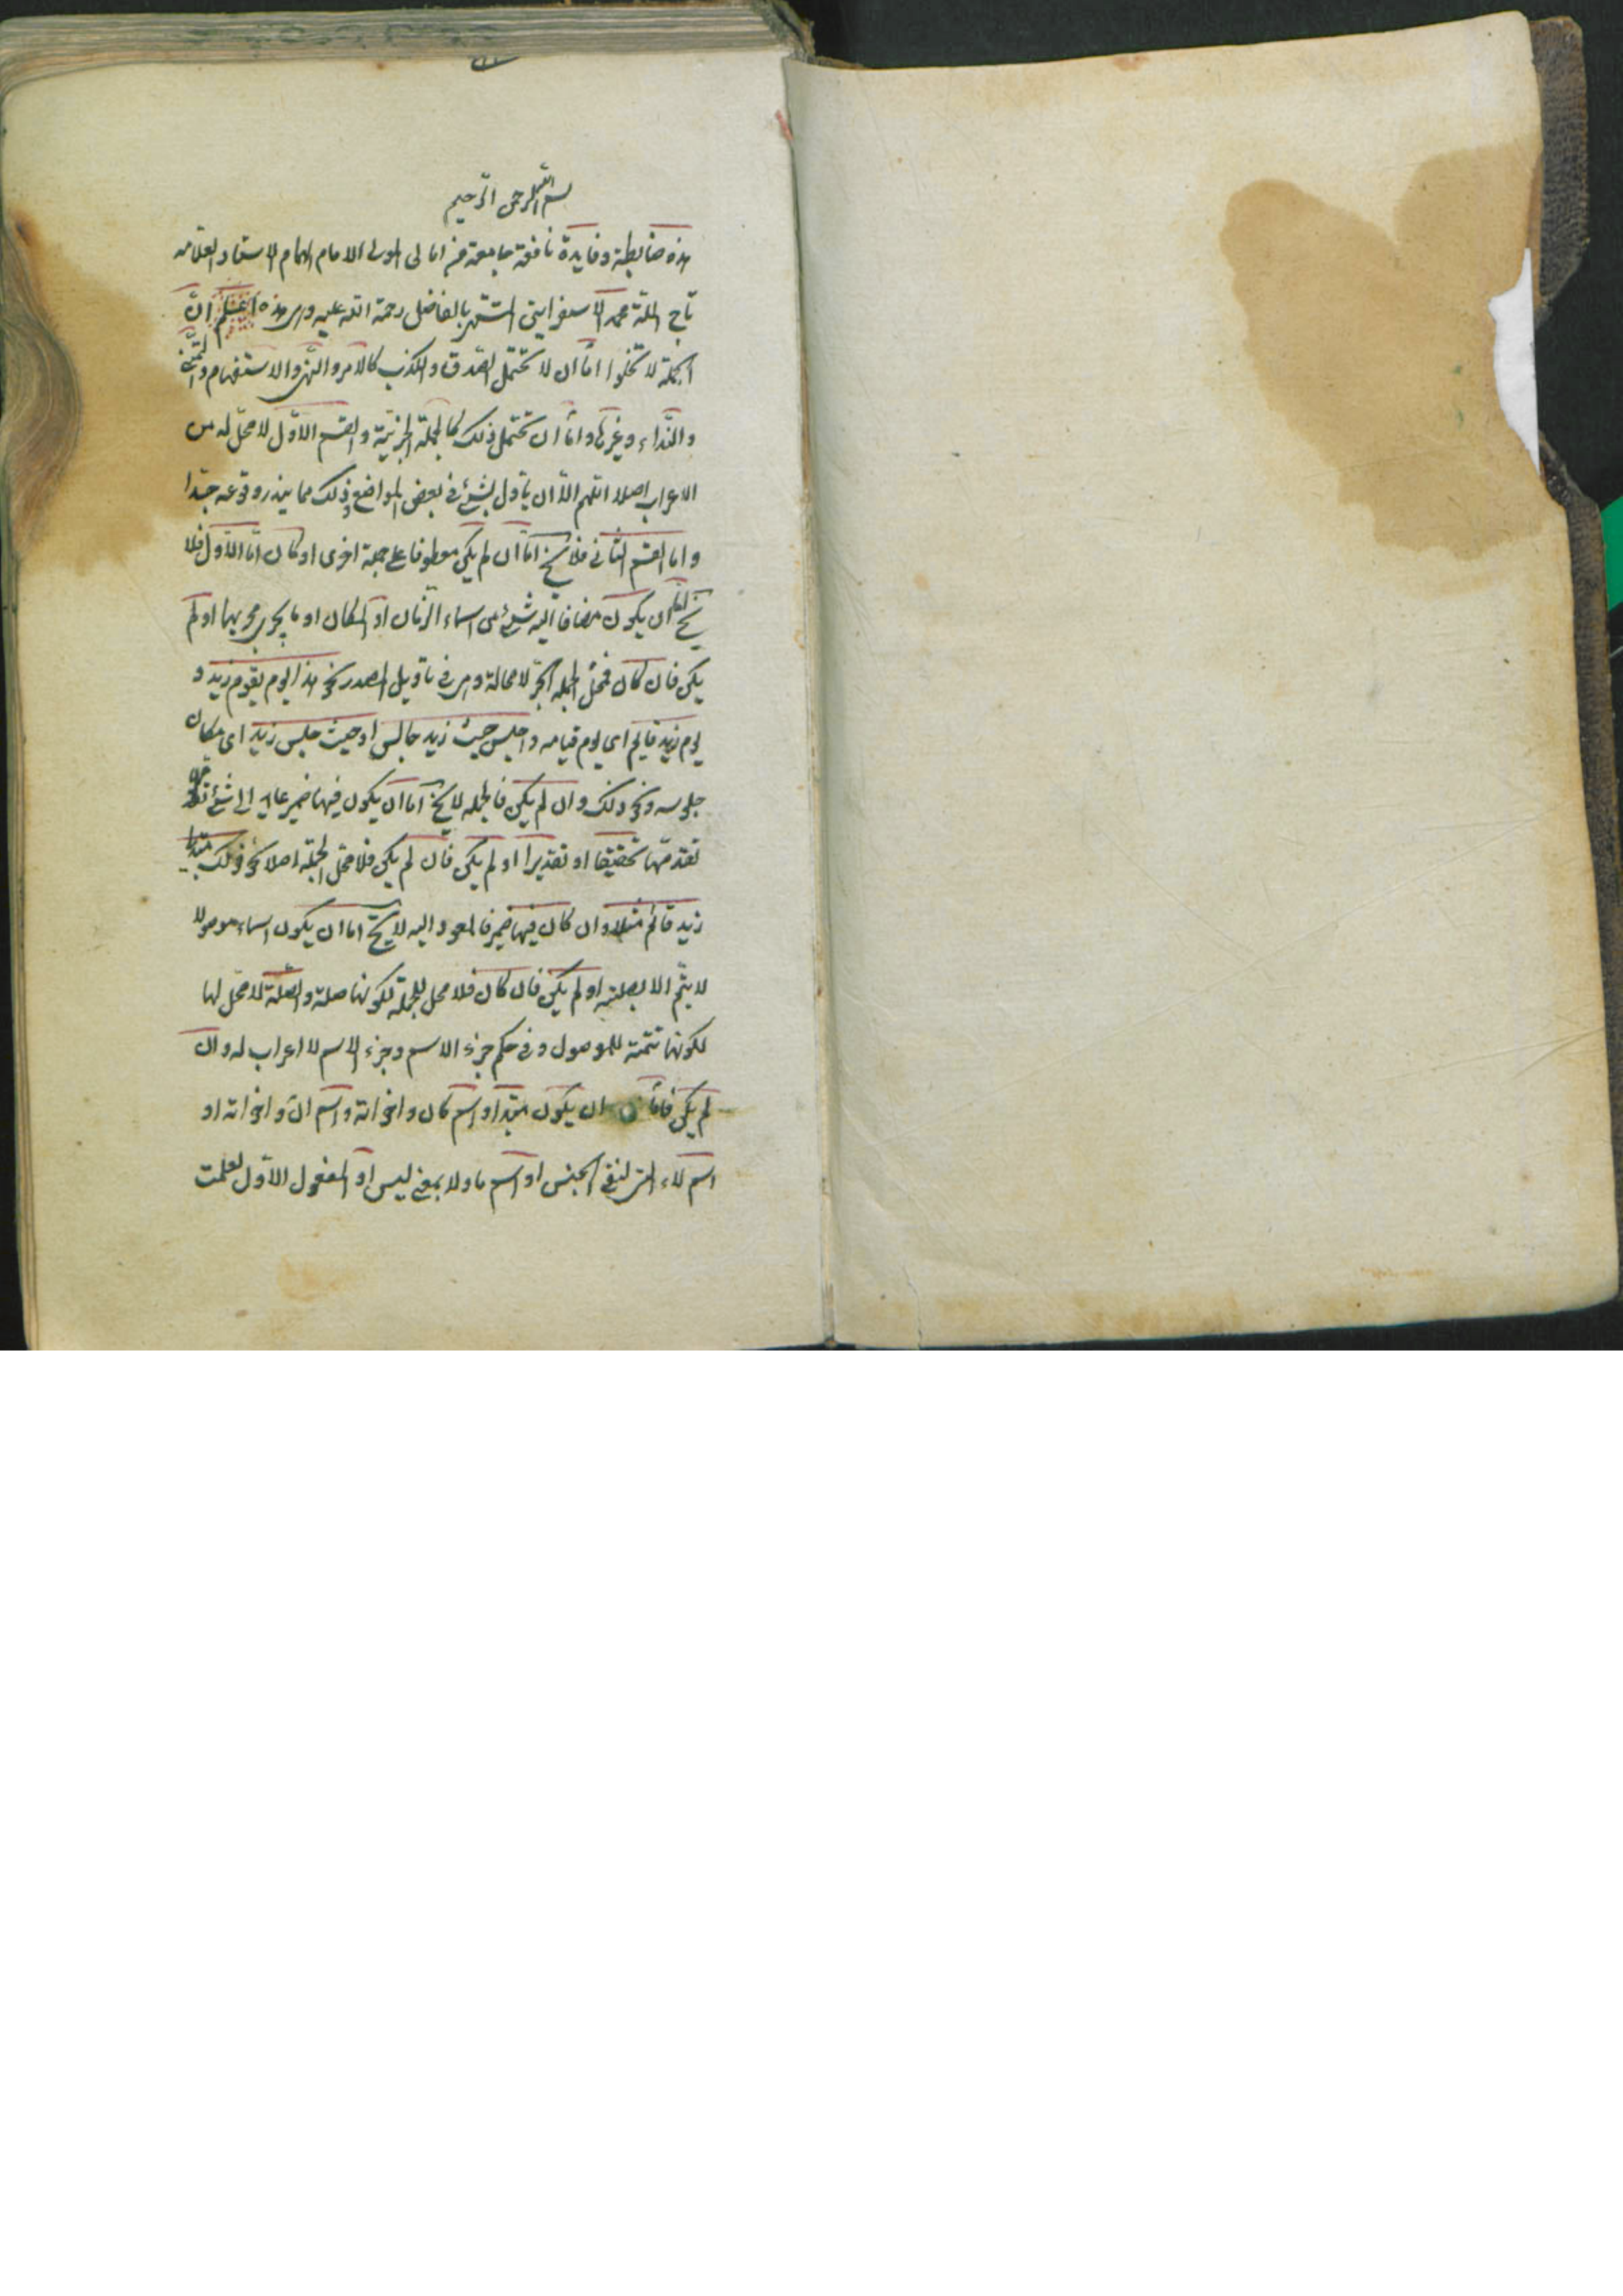 بسم الله الرحمن الرحيم
هذه ضابطة وفايدة نافعة جامعة من امالى المولى الامام الهمام الاستاد العلامه
تاج الملة محمد الاسفراينى المشتهر بالفاضل رحمة الله عليه وهى هذه اعلم انّ
الجملة لا تخلوا امّا ان لا تحتمل الصّدق والكذب كالامر والنّهى والاستفهام والتمنّى
والنّداء وغيرها وامّا ان تحتمل ذلك كالجملة الخبريّة والقسم الاوّل لا محلّ له من
الاعراب اصلا اللهم الّا ان يأول بشئ فى بعض المواضع وذلك مما يندر وقوعه جدّا
واما القسم الثانى فلا يخ امّا ان لم يكن معطوفا على جملة اخرى او كان امّا الاوّل فلا
يخ امّا ان يكون مضافا اليه شئ من اسماء الزّمان او المكان او ما يجرى مجريهما او لم
يكن فان كان فمحلّ الجملة الجرّ لا محالة وهى فى تأويل المصدر نحو هذا اليوم يقوم زيد و
يوم زيد قايم اى يوم قيامه واجلس حيث زيد جالس او حيث جلس زيد اى مكان
جلوسه ونحو ذلك وان لم يكن فالجمله لا يخ امّا ان يكون فيها ضمير عايد الى شئ
تقدمّها تحقيقا او تقديرا او لم يكن فان لم يكن فلا محلّ للجملة اصلا نحو قولك مبتدئا
زيد قائم مثلا وان كان فيها ضمير فالمعود اليه لا يخ اما ان يكون اسماء موصولا
لا يتّم الا بصلته او لم يكن فان كان فلا محل للجملة لكونها صلة والصّلة لا محّل لها
لكونها تتمّة للموصول وفى حكم جزء الاسم وجزء الاسم لا اعراب له وان
لم يكن فامّا ان يكون مبتدا او اسم كان واخواته واسم انّ واخواته او
اسم لاء التى لنفى الجنس او اسم ما ولا بمعنى ليس او المفعول الاوّل لعلمت